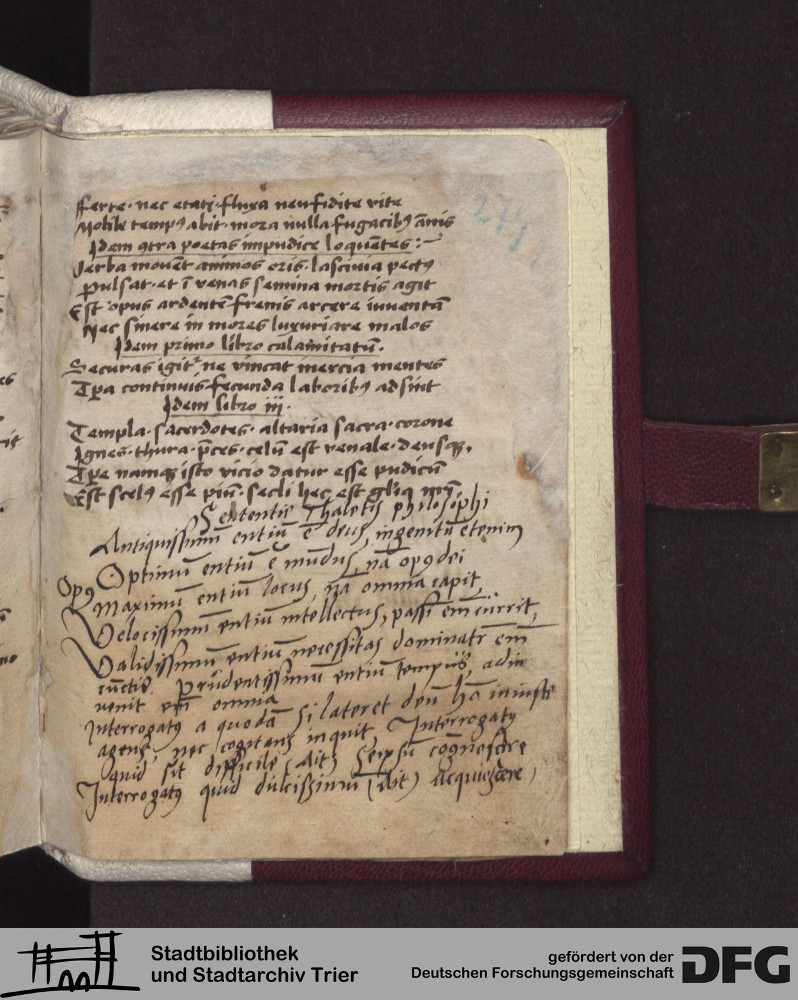 274
fferte. nec etati. fluxa neu fidite vite
Mobile tempꝰ abit. mora nulla fugacibꝰ ānis
Idem ꝯtra poetas impudice loquētes :~
Verba mouēt animos oris. lasciuia pectꝰ
Pulsat. et ī venas semina mortis agit
Est opus ardentē frenis arcere iuuentā
Nec sinere in mores luxuriare malos
Idem primo libro calamitatum.
Securas igit᷑ ne vincat inercia mentes
Tꝑa continuis fecunda laboribꝰ adsint
Idem libro iij.
Templa. sacerdotes. altaria sacra. corone
Ignes. thura. p̄ces. celū est venale. deusqꝫ.
Tꝑe namqꝫ isto vicio datur esse pudicū
Est scelꝰ esse piū. secli hec est gl̄ia
Sententie Thaletis philosophi
Antiquissimum entiū ē deus, ingenitū etenim
Optimū entiū ē mūdus, nā opꝰ dei
Opꝰ
Maximū entiū locus, nā omnia capit,
Velocissimū entiū intellectus, passī em̄ currit,
Validissimū entiū necessitas dominatr em̄
cūctis. Prudentissimū entiū tempus, adin
uenit em̄ omnia
Interrogatꝰ a quodā si lateret deū hō iniuste
agens, nec cogitans inquit, Interrogatꝰ
quid sit difficile (Ait) seipsū cognoscere
Interrogatꝰ quid dulcissimū (Ait) acquiescere,
Stadtbibliothek
und Stadtarchiv Trier
gefördert von der
Deutschen Forschungsgemeinschaft
DFG